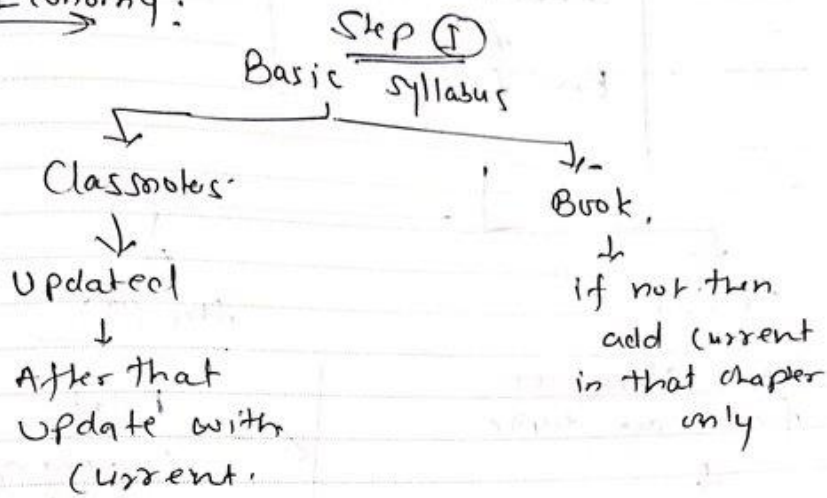 Economy :
Step ①
Basic Syllabus
Classnotes.
Updated
After that
update with
Current.
Book.
if not then
add Current
in that chapter
only